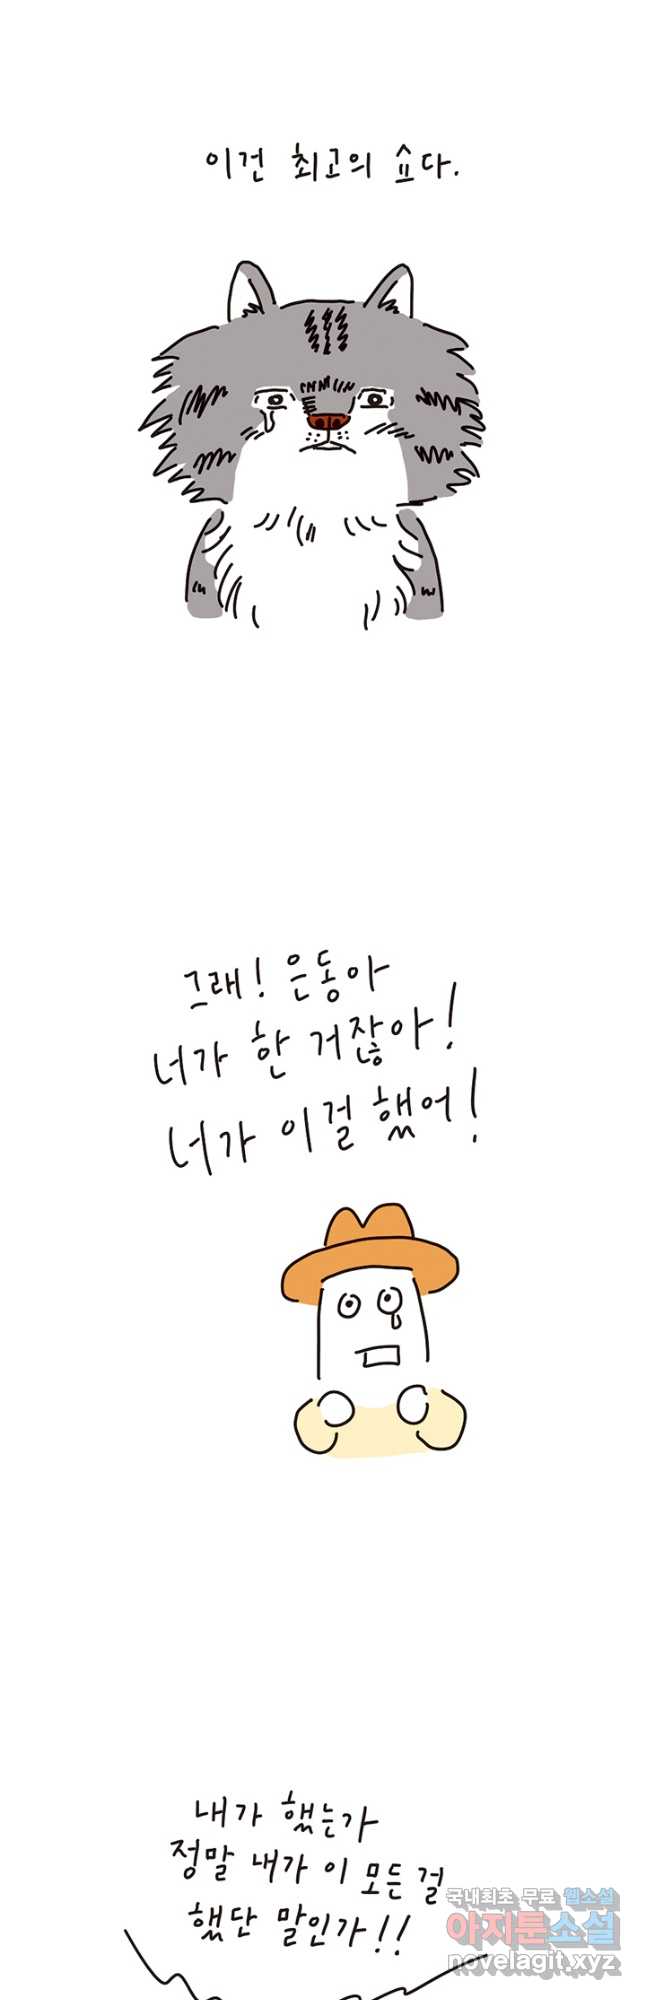 이건 최고의 쇼다.
그래! 은동아
너가 한 거잖아!
너가 이걸 했어!
내가 했는가
정말 내가 이 모든 걸
했단 말인가!!
국내최초 무료 웹소설
아지툰소설
novelagit.xyz